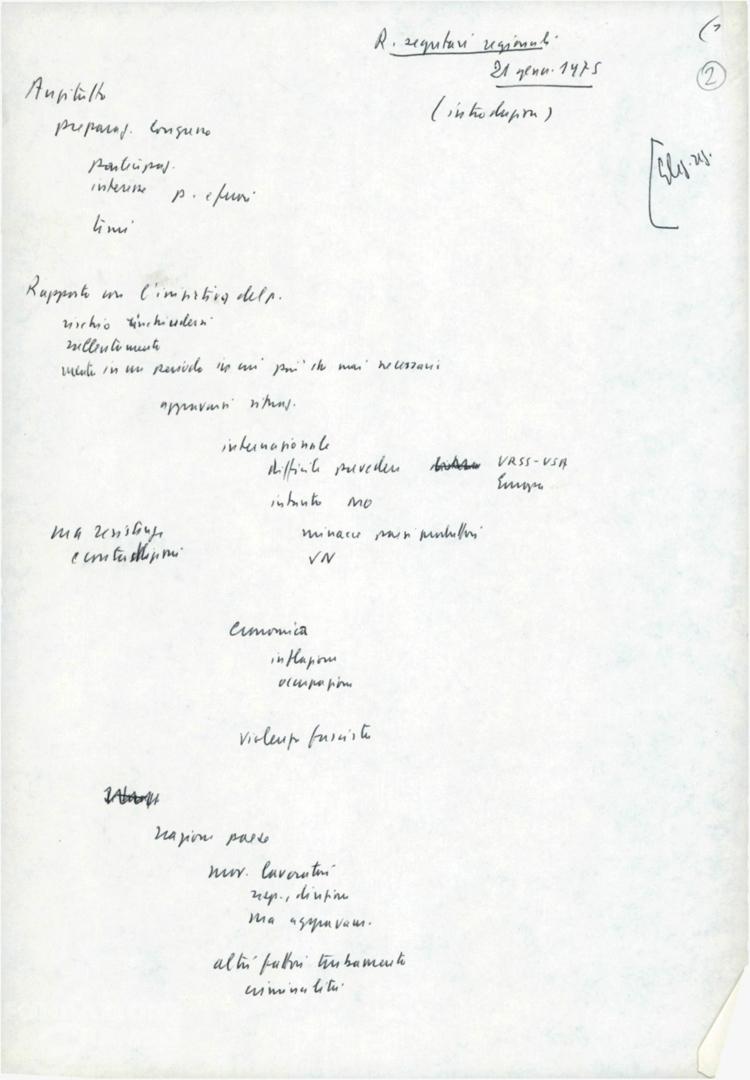 R. segretari regionali
21 genn. 1975
2
(introduzione)
Anzitutto
preparaz. Congresso
partecipaz.
interesse p. e fuori
limiti
Rapporto con l'iniziativa del p.
rischio rinchiudersi
rallentamento
mentre in un periodo in cui più che mai necessari
aggravarsi situaz.
internazionale
difficile prevedere URSS-USA
Europa
intanto MO
ma resistenze
e contraddizioni
minacce paesi produttori
VN
economica
inflazione
occupazione
violenza fascista
reazione paese
mov. lavoratori
resp., disciplina
ma aggravam.
altri fattori turbamento
criminalità